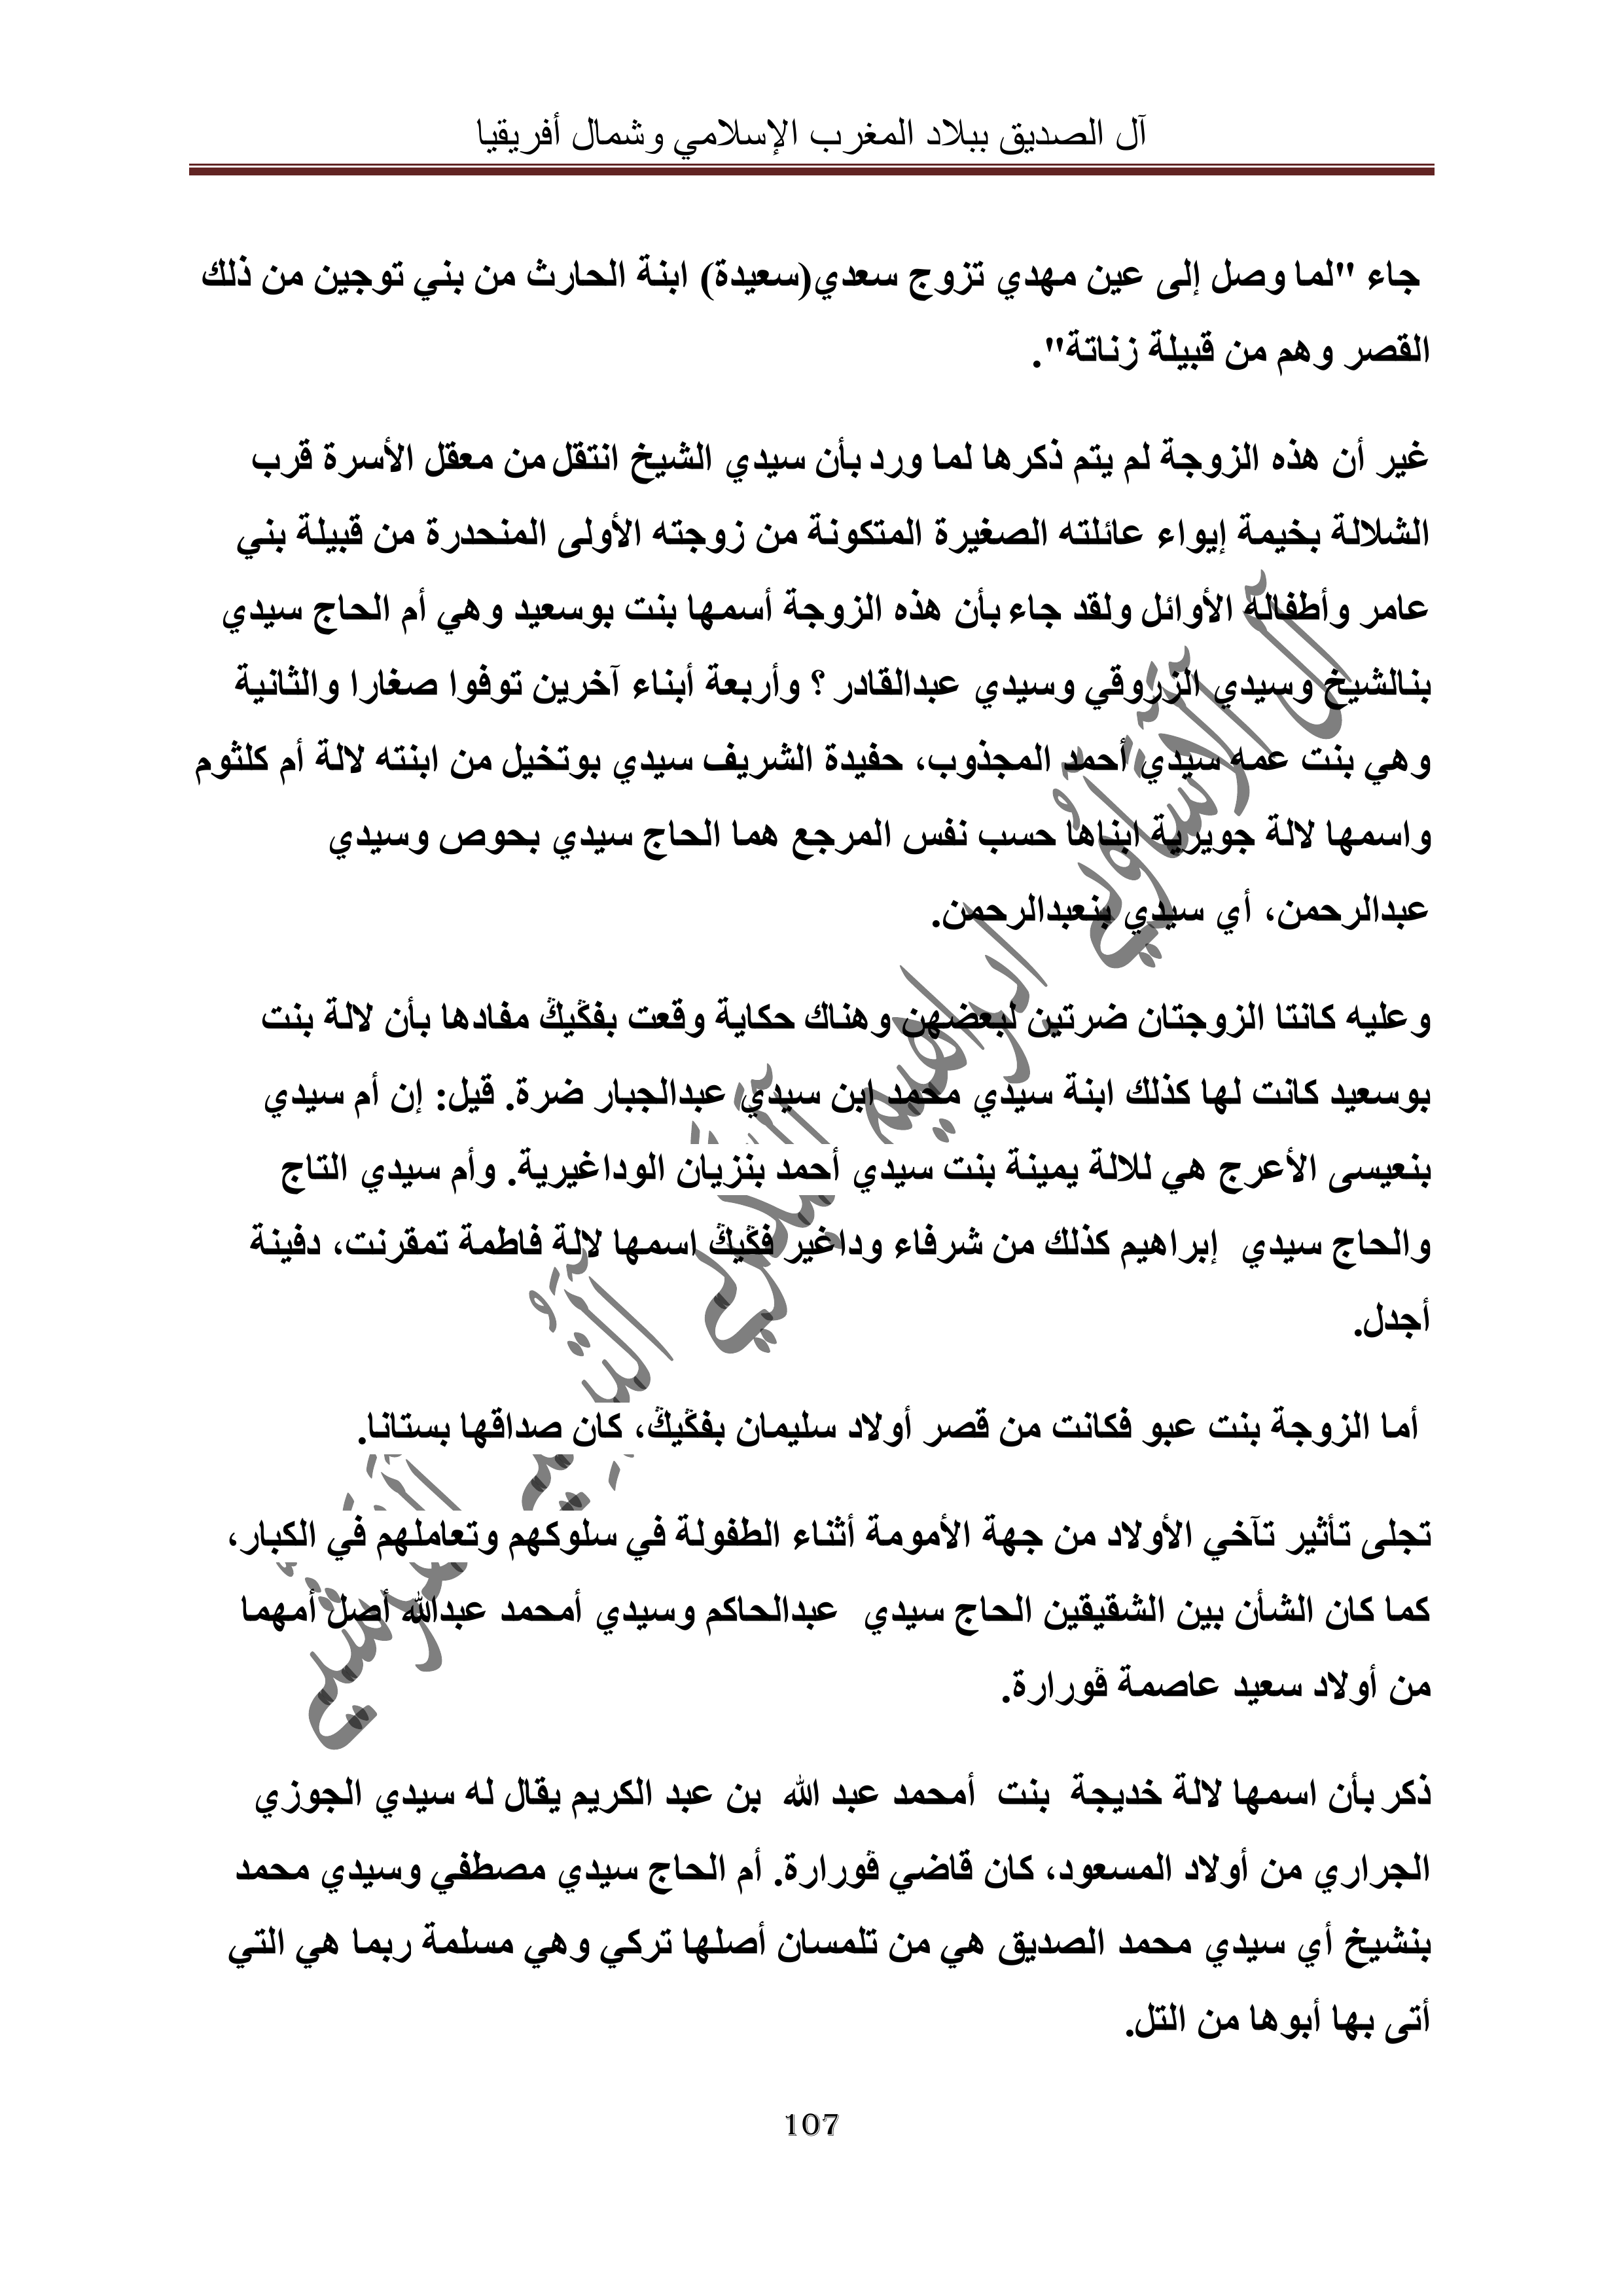 آل الصديق ببلاد المغرب الإسلامي وشمال أفريقيا
جاء "لما وصل إلى عين مهدي تزوج سعدي(سعيدة) ابنة الحارث من بني توجين من ذلك
القصر وهم من قبيلة زناتة".
غير أن هذه الزوجة لم يتم ذكرها لما ورد بأن سيدي الشيخ انتقل من معقل الأسرة قرب
الشلالة بخيمة إيواء عائلته الصغيرة المتكونة من زوجته الأولى المنحدرة من قبيلة بني
عامر وأطفاله الأوائل ولقد جاء بأن هذه الزوجة أسمها بنت بوسعيد وهي أم الحاج سيدي
بنالشيخ وسيدي الزروقي وسيدي عبدالقادر ؟ وأربعة أبناء آخرين توفوا صغارا والثانية
وهي بنت عمه سيدي أحمد المجذوب، حفيدة الشريف سيدي بوتخيل من ابنته لالة أم كلثوم
واسمها لالة جويرية ابناها حسب نفس المرجع هما الحاج سيدي بحوص وسيدي
عبدالرحمن، أي سيدي بنعبدالرحمن.
وعليه كانتا الزوجتان ضرتين لبعضهن وهناك حكاية وقعت بفڭيڭ مفادها بأن لالة بنت
بوسعيد كانت لها كذلك ابنة سيدي محمد ابن سيدي عبدالجبار ضرة. قيل: إن أم سيدي
بنعيسى الأعرج هي للالة يمينة بنت سيدي أحمد بنزيان الوداغيرية. وأم سيدي التاج
والحاج سيدي إبراهيم كذلك من شرفاء وداغير فڭيڭ اسمها لالة فاطمة تمقرنت، دفينة
أجدل.
أما الزوجة بنت عبو فكانت من قصر أولاد سليمان بفڭيڭ، كان صداقها بستانا.
تجلى تأثير تآخي الأولاد من جهة الأمومة أثناء الطفولة في سلوكهم وتعاملهم في الكبار،
كما كان الشأن بين الشقيقين الحاج سيدي عبدالحاكم وسيدي أمحمد عبدالله أصل أمهما
من أولاد سعيد عاصمة ڨورارة.
ذكر بأن اسمها لالة خديجة بنت أمحمد عبد الله بن عبد الكريم يقال له سيدي الجوزي
الجراري من أولاد المسعود، كان قاضي ڨورارة. أم الحاج سيدي مصطفي وسيدي محمد
بنشيخ أي سيدي محمد الصديق هي من تلمسان أصلها تركي وهي مسلمة ربما هي التي
أتى بها أبوها من التل.
107